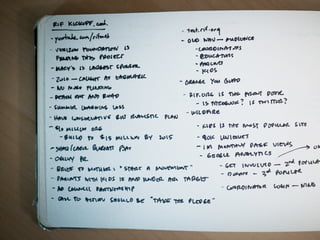 RIF KICKOFF.
- youtube.com/ritmus
- VERIZON FOUNDATION IS FUNDING THIS PROJECT
- MACY'S IS LARGEST SPONSOR
- 2010 - CAUGHT AT
- NO MORE FUNDING
- READ AND
- SUMMER LEARNING LOSS
- HAVE CONSERVATIVE BUT REALISTIC PLAN
- $10 MILLION ORG
- BUILD TO $15 MILLION BY 2015
- OGILVY PR
- BRIEF TO MOTHERS: "START A MOVEMENT"
- PARENTS WITH KIDS 12 AND UNDER ARE TARGET
- AD COUNCIL PARTNERSHIP
- CALL TO ACTION SHOULD BE "TAKE THE PLEDGE"
- test.rif.org
- OLD NAV - AUDIENCE
- COORDINATORS
- EDUCATORS
- PARENTS
- KIDS
- ORANGE YOU GLAD
- RIF.ORG IS THE FRONT DOOR
- IS FACEBOOK? IS TWITTER?
- WILDFIRE
- KIDS IS THE MOST POPULAR SITE
- 90K UNIQUES
- 1M MONTHLY PAGE VIEWS
- GOOGLE ANALYTICS
- GET INVOLVED - 2nd POPULAR
- DONATE - 3rd POPULAR
- COORDINATOR LOGIN -